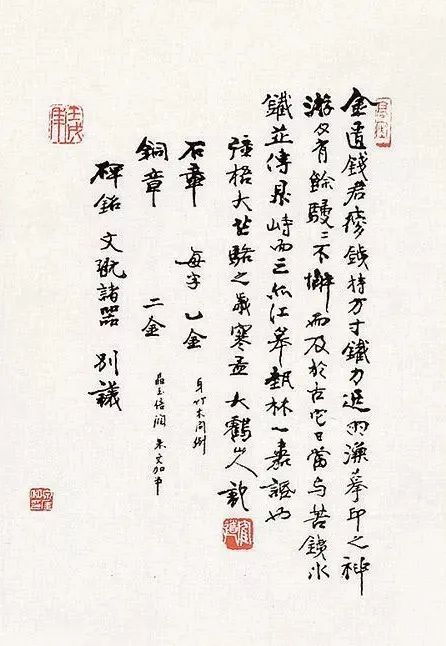 金匱錢君瘦鐵持方寸鐵力追兩漢摹印之神
游刃有餘駸〻不懈而及於古它日當与苦鐵冰
鐵並傳鼎峙而三亦江皋藝林一嘉話也
彊梧大芒駱之歲寒孟 大鶴山人記
石章 每字乙金 牙竹木同例
銅章 二金 晶玉倍潤 朱文加半
碑銘 文玩諸器 別議
壬戌年